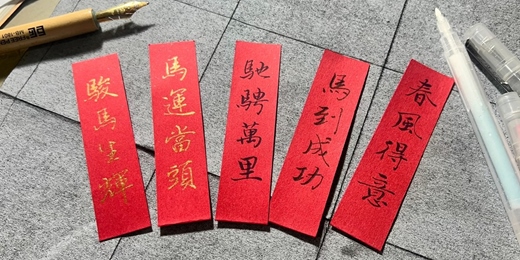 駿馬生輝
馬運當頭
馳騁萬里
馬到成功
春風得意